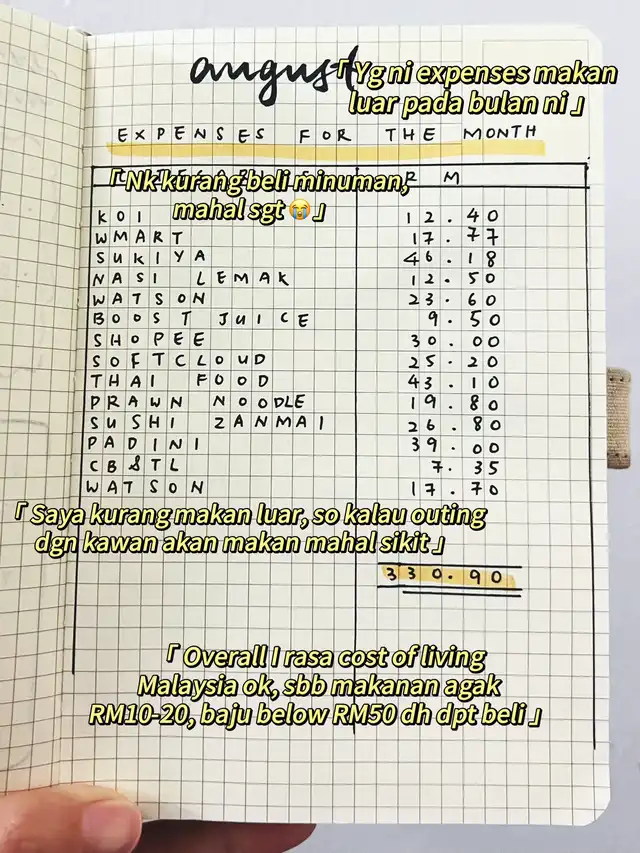 august
「 Yg ni expenses makan
luar pada bulan ni 」
EXPENSES FOR THE MONTH
「 Nk kurang beli minuman,
mahal sgt 😭 」
RM
KOI 12.40
WMART 17.77
SUKIYA 46.18
NASI LEMAK 12.50
WATSON 23.60
BOOST JUICE 9.50
SHOPEE 30.00
SOFTCLOUD 25.20
THAI FOOD 43.10
PRAWN NOODLE 19.80
SUSHI ZANMAI 26.80
PADINI 39.00
CB&TL 7.35
WATSON 17.70
「 Saya kurang makan luar, so kalau outing
dgn kawan akan makan mahal sikit 」
330.90
「 Overall I rasa cost of living
Malaysia ok, sbb makanan agak
RM10-20, baju below RM50 dh dpt beli 」